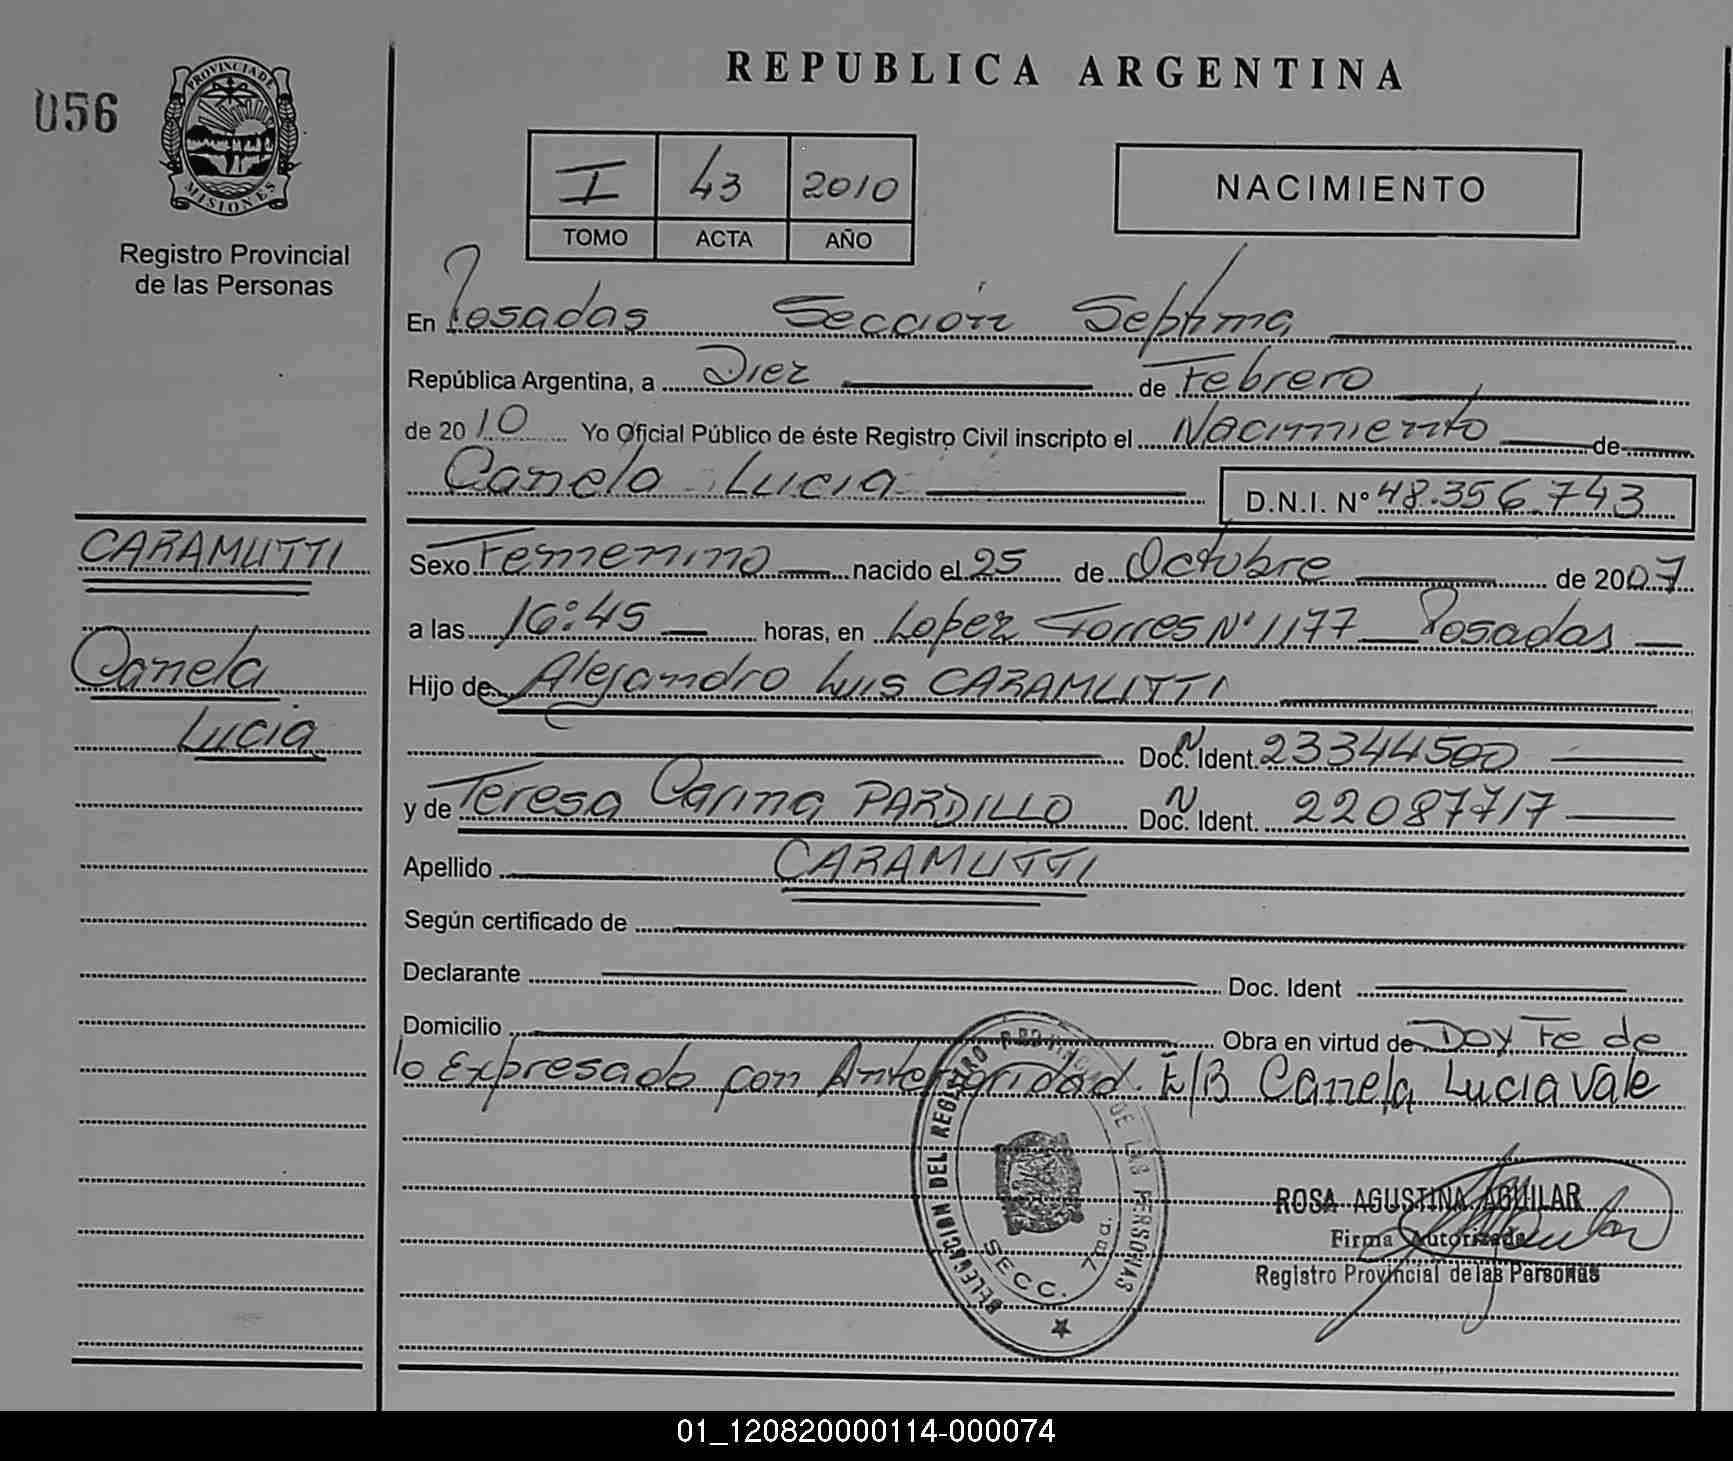 REPUBLICA ARGENTINA
056
PROVINCIA DE
MISIONES
Registro Provincial
de las Personas
I 43 2010
TOMO ACTA AÑO
NACIMIENTO
En Posadas Sección Septima
República Argentina, a Diez de Febrero
de 2010 Yo Oficial Público de éste Registro Civil inscripto el Nacimiento de
Canela Lucia D.N.I. N° 48.356.743
CARAMUTTI
Canela
Lucia
Sexo Femenino nacido el 25 de Octubre de 2007
a las 16:45 horas, en Lopez Torres N° 1177 Posadas
Hijo de Alejandro Luis CARAMUTTI
Doc. Ident. 23344500
y de Teresa Carina PARDILLO Doc. Ident. 22087717
Apellido CARAMUTTI
Según certificado de
Declarante Doc. Ident
Domicilio Obra en virtud de Doy Fe de
lo Expresado con Anterioridad. E/B Canela Lucia Vale
DELEGACION DEL REGISTRO PROVINCIAL DE LAS PERSONAS
SECC. 7ma.
ROSA AGUSTINA AGUILAR
Firma Autorizada
Registro Provincial de las Personas
01_120820000114-000074